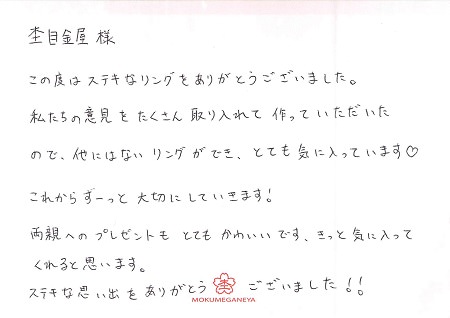 杢目金屋 様
この度はステキなリングをありがとうございました。
私たちの意見をたくさん取り入れて作っていただいた
ので、他にはないリングができ、とても気に入っています♡
これからずーっと大切にしていきます!
両親へのプレゼントもとてもかわいいです、きっと気に入って
くれると思います。
ステキな思い出をありがとう ございました!!
杢
MOKUMEGANEYA